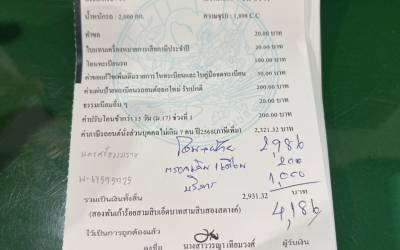 น้ำหนักรถ : 2,000 กก. ความจุรถ : 1,898 C.C
ค่าพล 20.00 บาท
ใบแทนเครื่องหมายการเสียภาษีประจำปี 20.00 บาท
โอนทะเบียนรถ 100.00 บาท
ค่าขอแก้ไขเพิ่มเติมรายการในทะเบียนและใบคู่มือจดทะเบียน 50.00 บาท
ค่าแผ่นป้ายทะเบียนรถยนต์ออกใหม่ รับปกติ 200.00 บาท
ธรรมเนียมอื่น ๆ 20.00 บาท
ค่าปรับโอนช้ากว่า 15 วัน (ม.17) ช่วงที่ 1 200.00 บาท
ค่าภาษีรถยนต์นั่งส่วนบุคคลไม่เกิน 7 คน ปี2568(ภาษีเพิ่ม) 2,321.32 บาท
นครศรีธรรมราช โอน+ย้าย 2,986
200
บริการ 1,000
รวมเป็นเงินทั้งสิ้น 2,931.32 บาท
(สองพันเก้าร้อยสามสิบเอ็ดบาทสามสิบสองสตางค์) 4,186
ไว้เป็นการถูกต้องแล้ว
ลงชื่อ นางสาววรญา เทียมวงค์ ผู้รับเงิน